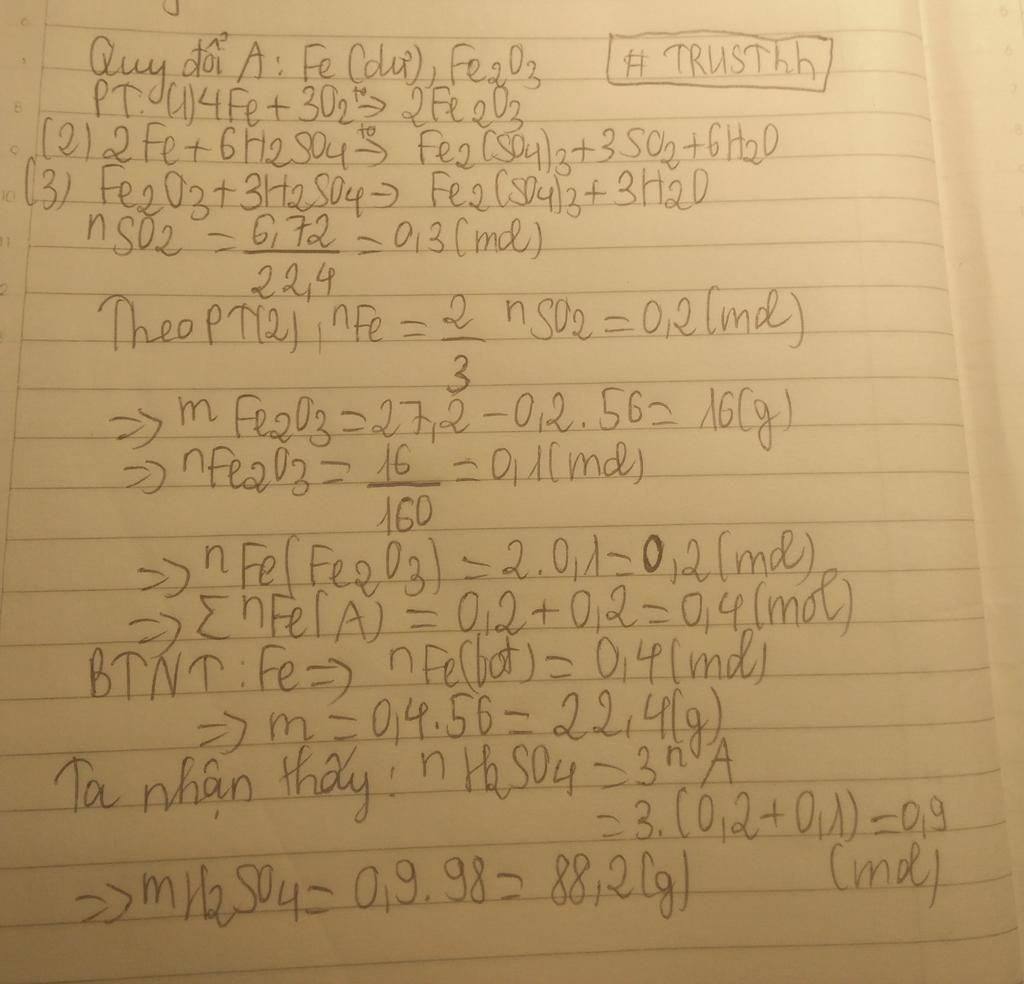 Quy đổi A: Fe (dư), Fe2O3 # TRUSThh
PT: (1) 4Fe + 3O2 t°→ 2Fe2O3
(2) 2Fe + 6H2SO4 t°→ Fe2(SO4)3 + 3SO2 + 6H2O
(3) Fe2O3 + 3H2SO4 → Fe2(SO4)3 + 3H2O
nSO2 = 6,72/22,4 = 0,3 (mol)
Theo PT(2), nFe = 2/3 nSO2 = 0,2 (mol)
=> mFe2O3 = 27,2 - 0,2.56 = 16(g)
=> nFe2O3 = 16/160 = 0,1 (mol)
=> nFe(Fe2O3) = 2.0,1 = 0,2 (mol)
=> ΣnFe(A) = 0,2 + 0,2 = 0,4 (mol)
BTNT: Fe => nFe(bột) = 0,4 (mol)
=> m = 0,4.56 = 22,4(g)
Ta nhận thấy: nH2SO4 = 3nA
= 3.(0,2 + 0,1) = 0,9
(mol)
=> mH2SO4 = 0,9.98 = 88,2(g)